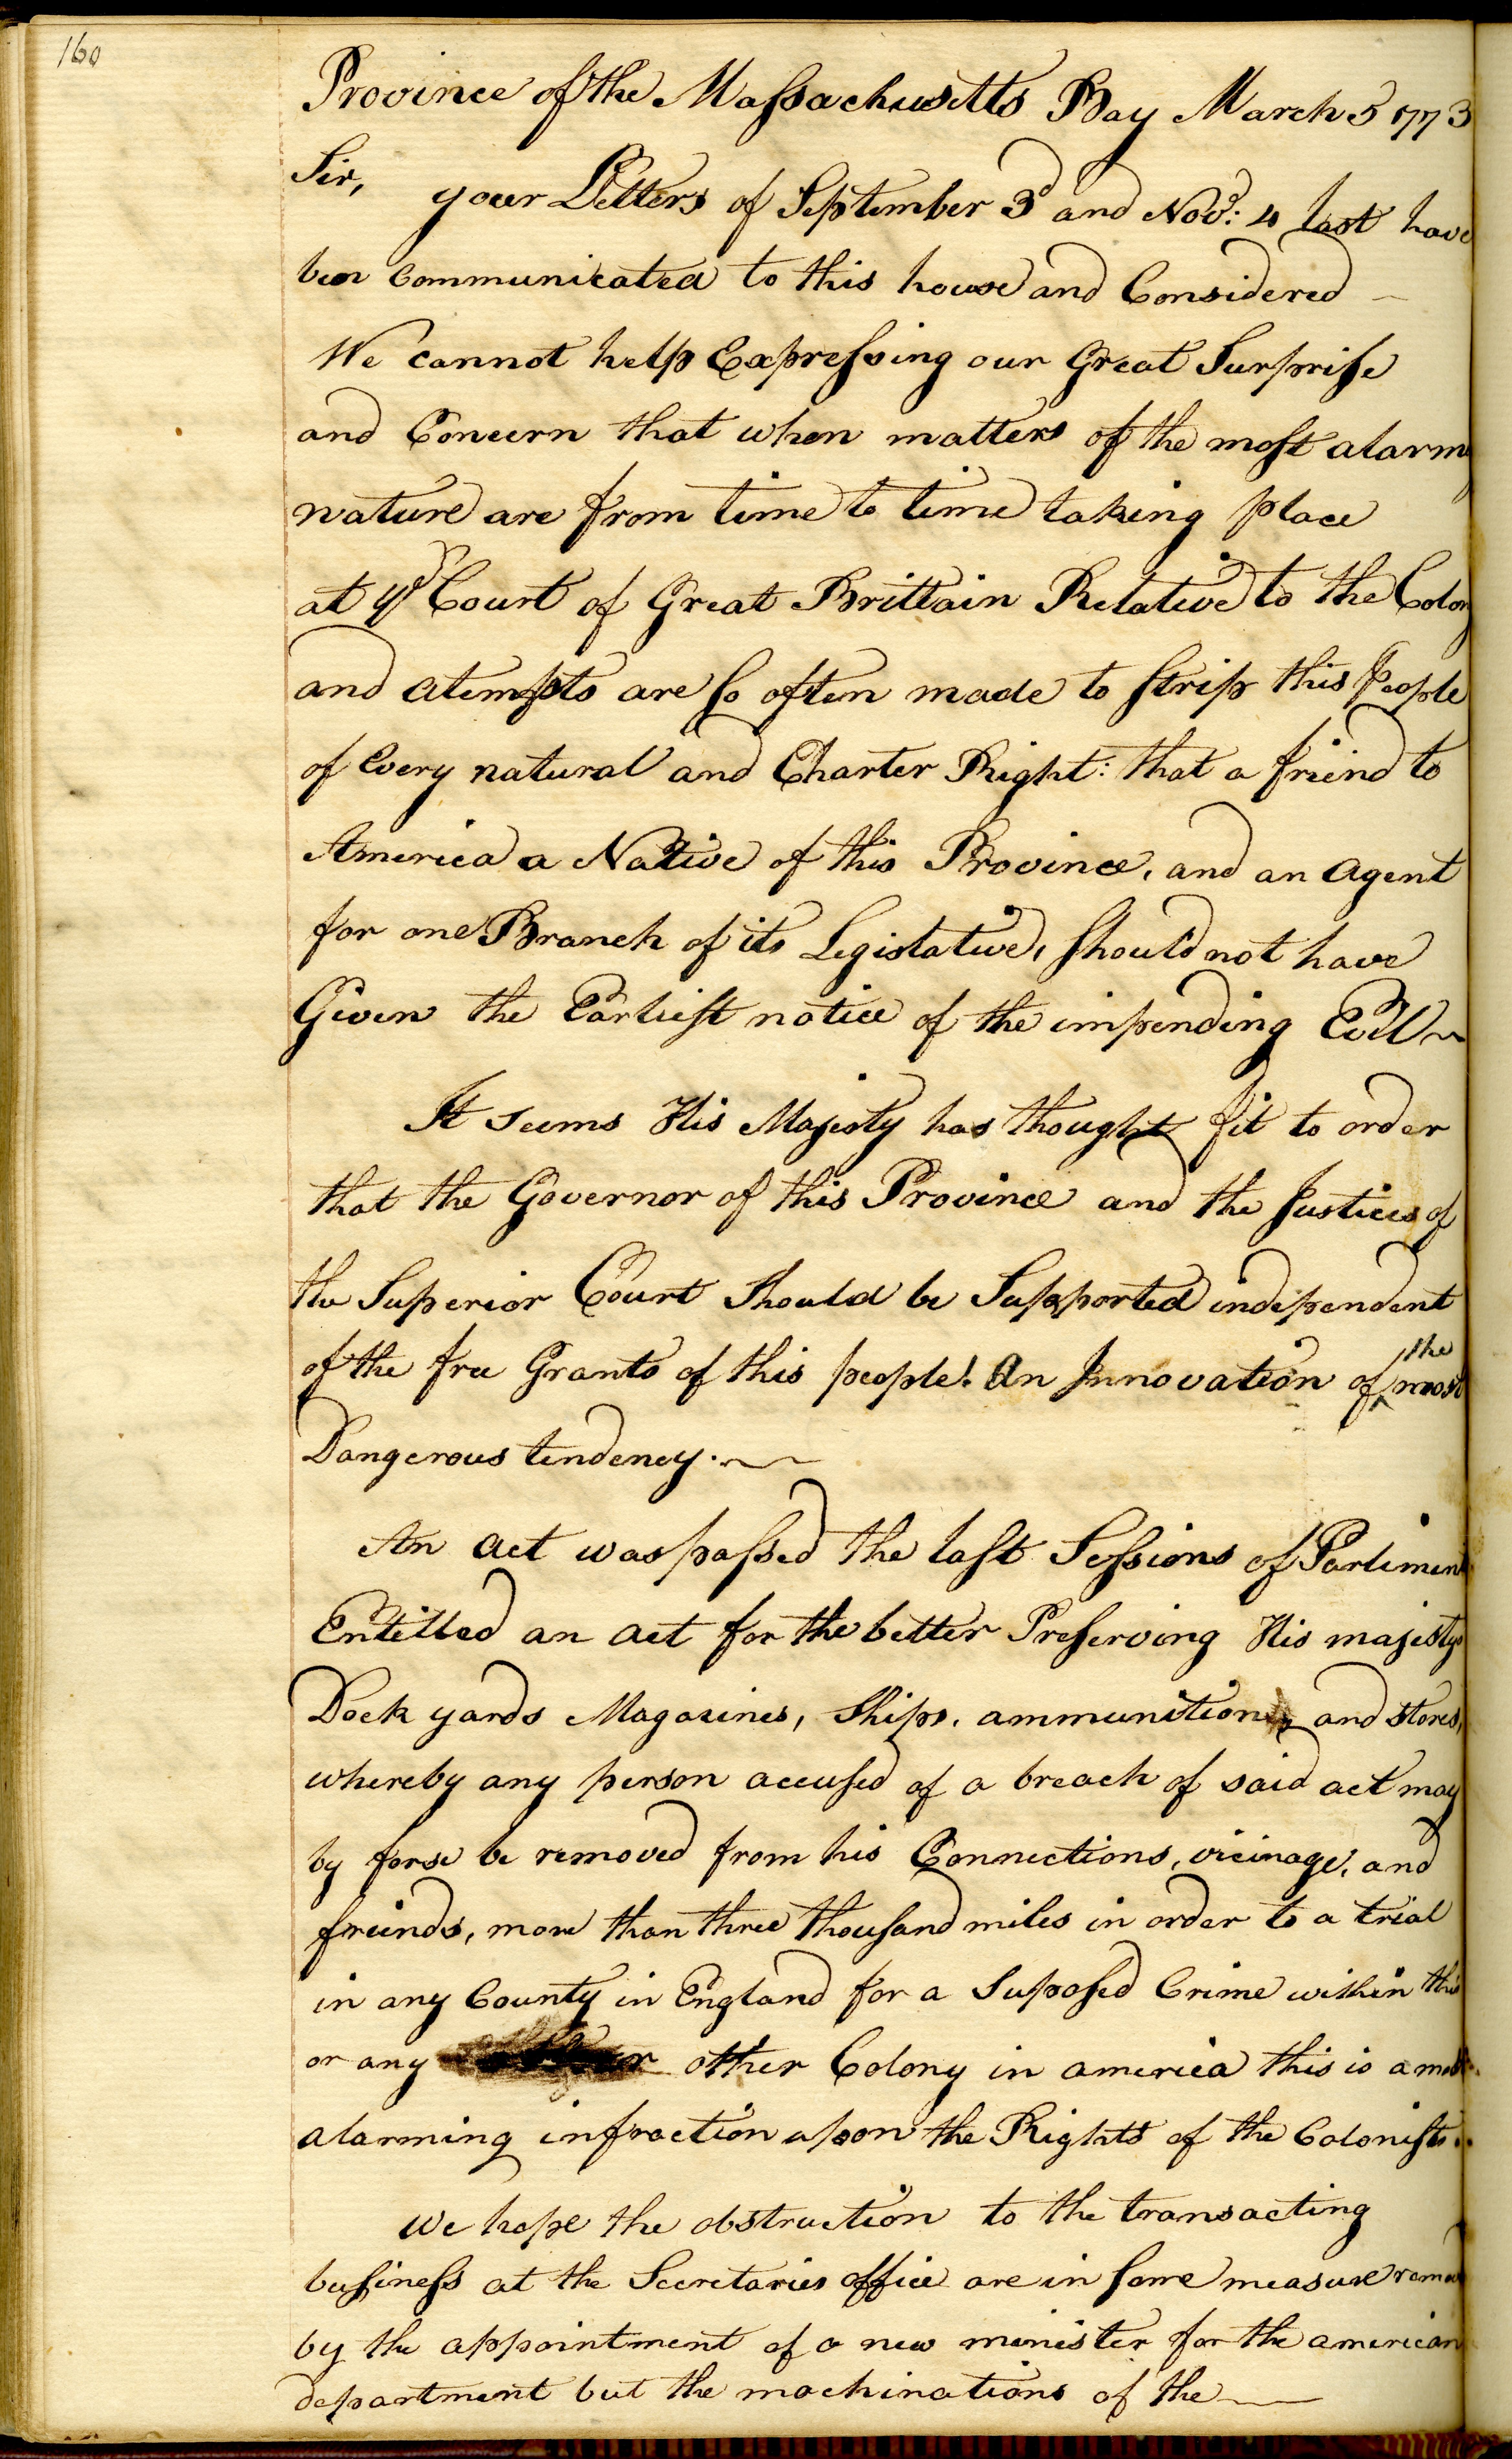 160
Province of the Massachusetts Bay March 5 1773
Sir, your Letters of September 3d and Novr: 4 last have
ben Communicated to this house and Considered
We cannot help Expressing our Great Surprise
and Concern that when matters of the most alarm
nature are from time to time taking place
at ye Court of Great Brittain Relative to the Colon
and atempts are so often made to strip this People
of Every natural and Charter Right: that a friend to
America a Native of this Province, and an Agent
for one Branch of its Legislative, should not have
Given the Earliest notice of the impending Evil
It seems His Majesty has thought fit to order
that the Governor of this Province and the Justices of
the Superior Court Should be Supported independent
of the free Grants of this people! An Innovation of the most
Dangerous tendency.
An Act was passed the last Sessions of Parliment
Entitled an act for the better Preserving His majestys
Dock yards Magazines, Ships, ammunition, and stores,
whereby any person accused of a breach of said act may
by forse be removed from his Connections, vicinage, and
freinds, more than three thousand miles in order to a trial
in any County in England for a Suposed Crime within this
or any other Colony in america this is a most
alarming infraction upon the Rights of the Colonists.
We hope the obstruction to the transacting
business at the Secretaries office are in some measure remov
by the appointment of a new minister for the american
department but the machinations of the